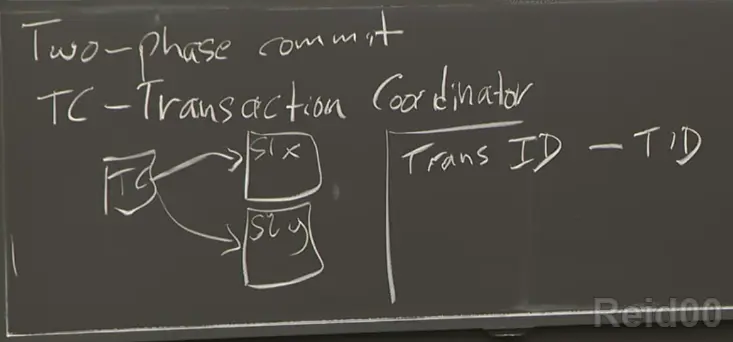 Two-phase commit
TC-Transaction Coordinator
TC
S1 x
S2 y
Trans ID - TID
Reid00